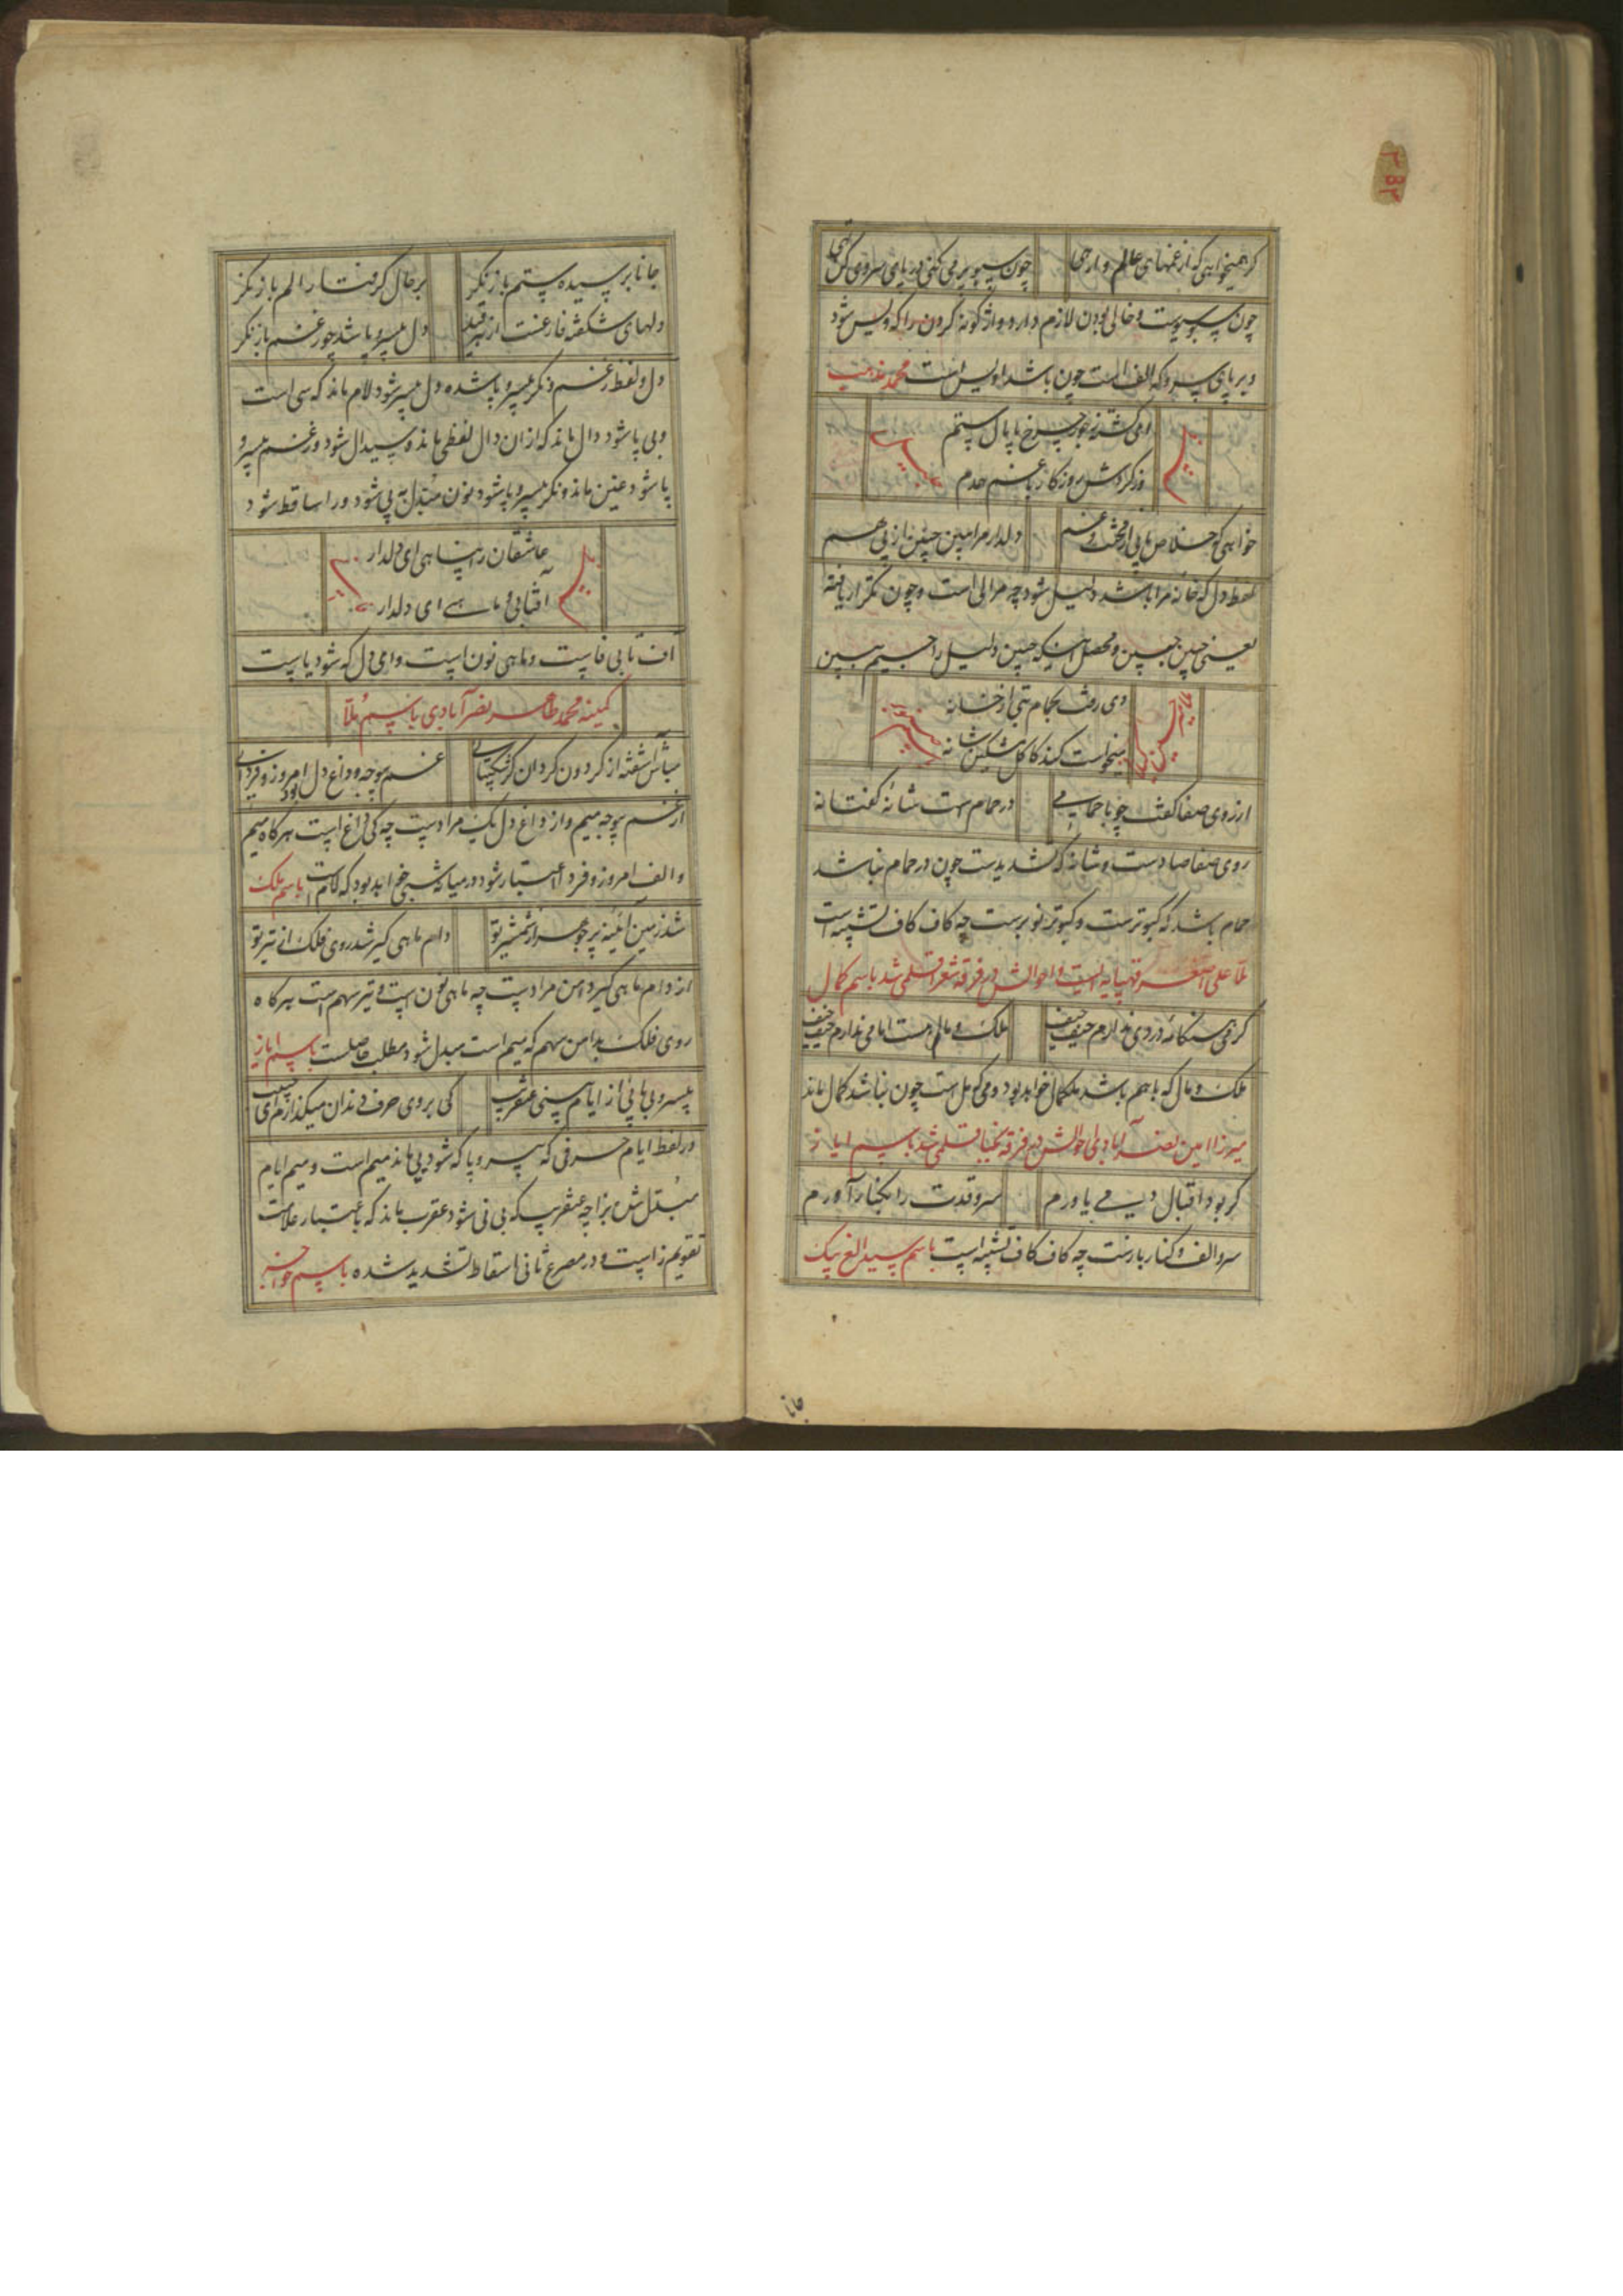 گر همیخواهی که از غمهای عالم وارهی چون سبو پر می کنی در پای سروی کن تهی
چون سبو پرست و خالی بودن لازم دارد واژگونه کردن را که ویس شود
و بر پای سرو که الف است چون باشد اویس است محمد
ای گشته ز جور چرخ پامال ستم
وز گردش روزگار با غم همدم
خواهی که خلاص یابی از محنت و غم دلدار مرا ببین چنین از پی هم
لفظ دل که خانه مرا باشد دلیل شود چه مرا لی است و چون تکرار یافته
یعنی چنین چنین و محصل اینکه چنین دلیل را جیم ببین
دی رفت بحمام بتی از خانه
میخواست کند کاکل مشکین شانه
از روی صفا گفت چو با حمامی در حمام ست شانه گفتا نه
روی صفا صادست و شانه که شدیدست چون در حمام نباشد
حمام باشد که کبوترست و کبوتر نو برست چه کاف کاف تشبیه است
ملا علی اصغر قهپایه ایست و احوالش در فرقه شعرا قلمی شد باسم کمال
گر می ستکانه دردی ندارم حیف حیف ملک و مالم هست اما می ندارم حیف حیف
ملک و مال که باهم باشد ملکمال خواهد بود و می که مل ست چون نباشد کمال ماند
میرزا امین نصرآبادی احوالش در فرقه نجبا قلمی شد باسم ایاز
گر بود اقبال دیسی یاورم سرو قدت را بکنار آورم
سرو الف و کنار بارنت چه کاف کاف تشبیه است باسم سید الغ بیک
جانا بر سیده ستم باز نگر بر حال گرفتار الم باز نگر
دلهای شکفته فارغست از دل بیسر و پا شد چو ز غم باز نگر
دل و لفظ ز غم و نگر بیسر و پا شده دل بیسر شود لام ماند که سی است
و بی پا شود دال ماند که از ان دال لفظی ماند و سیدال شود و ز غم بیسر و
پا شود عین ماند و نگر بیسر و پا شود نون مبدل به بی شود و را ساقط شود
عاشقان را پناهی ای دلدار
آفتابی و ماهی ای دلدار
آف تا بی فا یست و ماهی نون است و ای دل که شود یا یست
کمینه محمد طاهر نصرآبادی باسم ملا
مباش آشفته از گردون گردان گر شکیبائی غم بوجه و داغ دل بود امروز و فردائی
از غم بوجه میم و از داغ دل یک مرادست چه کی داغ است هرگاه میم
و الف امروز و فردا اعتبار شود در میانه شبی خواهد بود که لام است باسم ملک
شد زمین آئینه پر جوهر از شمشیر تو دام ماهی گیر شد روی فلک از تیر تو
از دام ماهی گیر دامن مرادست چه ماهی نون است و تیر سهم است هرگاه
روی فلک بدامن سهم که میم است مبدل شود مطلب حاصلست باسم ایاز
بیسر و بی پائی از ایام سنی عقرب کی بروی حرف دندان میگذارم ای حبیب
در لفظ ایام حرفی که بیسر و پا که شود بی ماند میم است و میم ایام
مبدل شد بزا چه عقرب که بی نی شود عقرب ماند که باعتبار علامت
تقویم زا یست و در مصرع ثانی اسقاط تشدید شده باسم
جانا